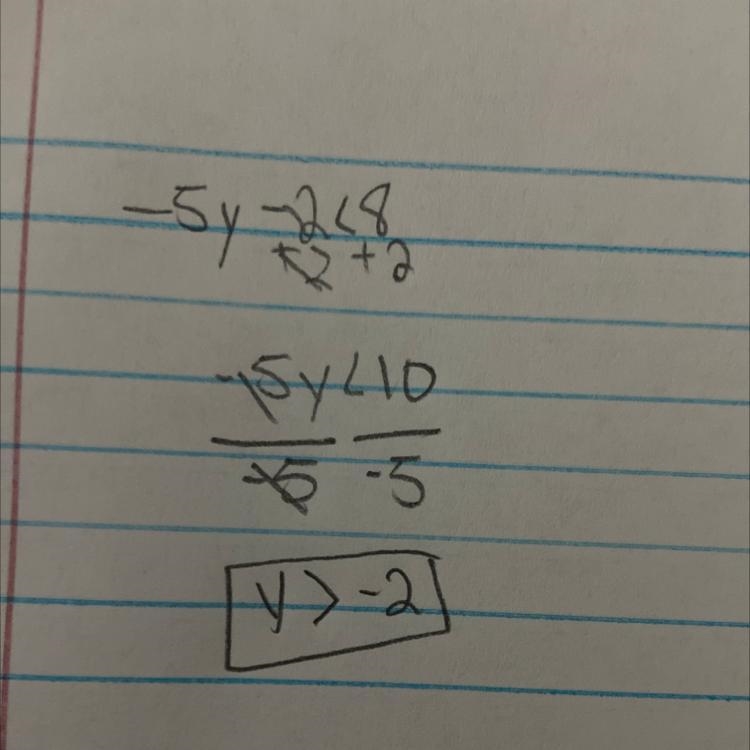 -5y -2<8
+2 +2
-5y<10
-5 -5
y > -2